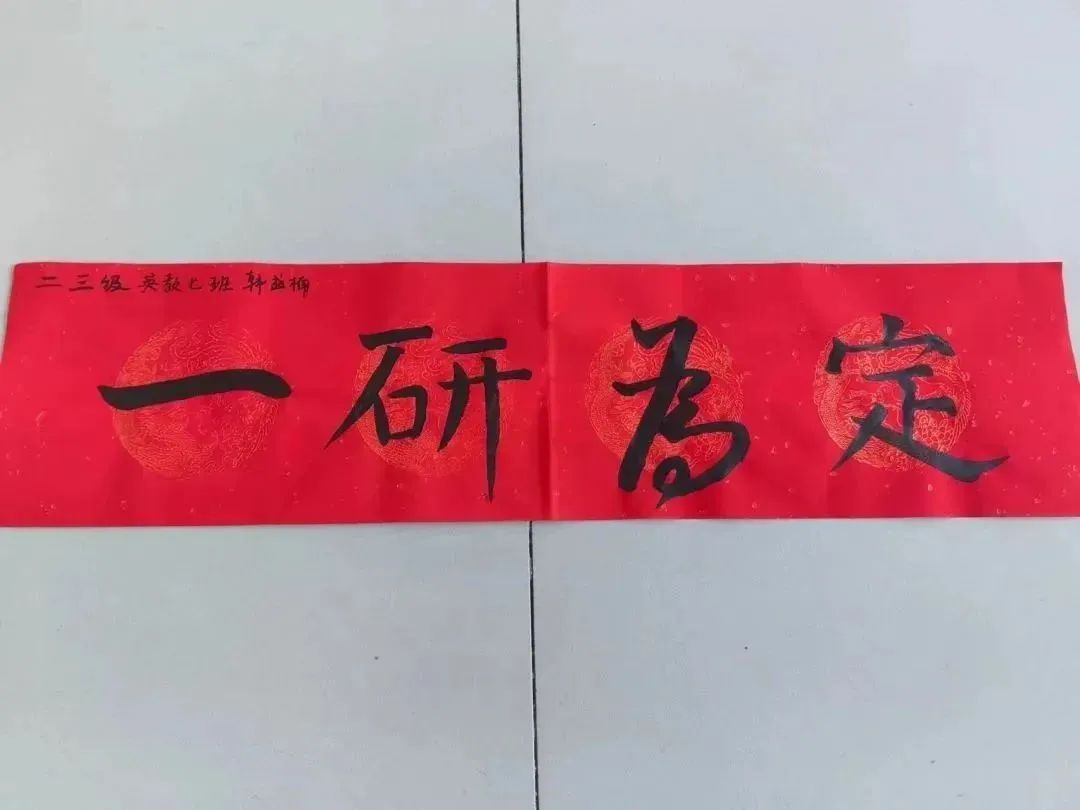 二三级 英教七班 韩益楠
一研為定